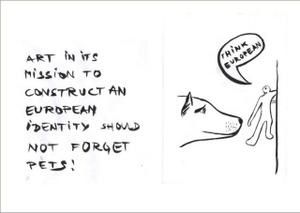 ART IN ITS
MISSION TO
CONSTRUCT AN
EUROPEAN
IDENTITY SHOULD
NOT FORGET
PETS!
THINK
EUROPEAN